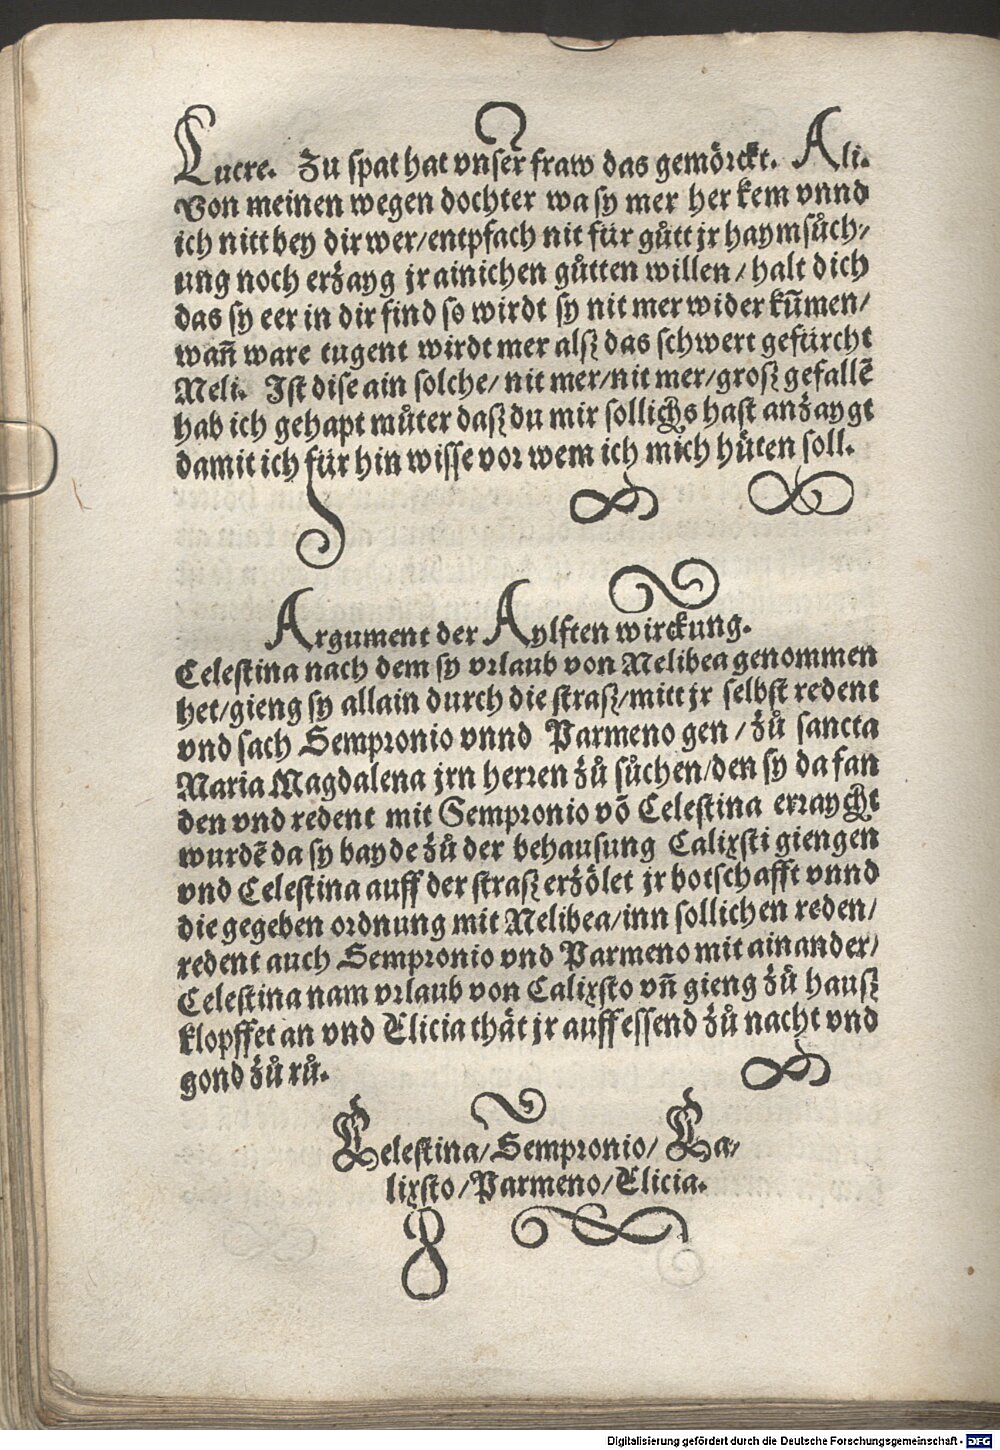 Lucre. Zu spat hat vnser fraw das gemörckt. Ali.
Von meinen wegen dochter wa sy mer her kem vnnd
ich nitt bey dir wer/entpfach nit für gůtt jr haymsůch⸗
ung noch erzayg jr ainichen gůtten willen/halt dich
das sy eer in dir find so wirdt sy nit mer wider kūmen/
wañ ware tugent wirdt mer alsz das schwert gefürcht
Meli. Ist dise ain solche/nit mer/nit mer/grosz gefallē
hab ich gehapt můter dasz du mir sollichs hast anzaygt
damit ich für hin wisse vor wem ich mich hüten soll.
Argument der Aylften wirckung.
Celestina nach dem sy vrlaub von Melibea genommen
het/gieng sy allain durch die strasz/mitt jr selbst redent
vnd sach Sempronio vnnd Parmeno gen/zů sancta
Maria Magdalena jrn herren zů sůchen/den sy da fan
den vnd redent mit Sempronio vō Celestina erraycht
wurdē da sy bayde zů der behausung Calixsti giengen
vnd Celestina auff der strasz erzölet jr botschafft vnnd
die gegeben ordnung mit Melibea/inn sollichen reden/
redent auch Sempronio vnd Parmeno mit ainander/
Celestina nam vrlaub von Calixsto vñ gieng zů hausz
klopffet an vnd Elicia thät jr auff essend zů nacht vnd
gond zů rů.
Celestina/Sempronio/Ca⸗
lixsto/Parmeno/Elicia.
Digitalisierung gefördert durch die Deutsche Forschungsgemeinschaft - DFG